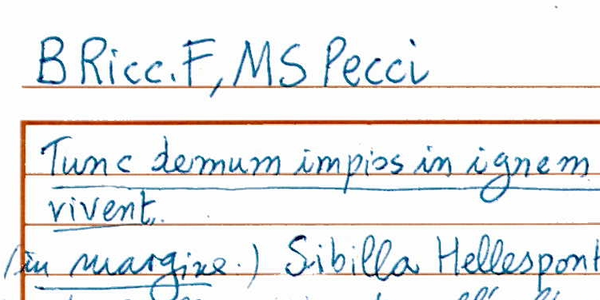 B Ricc. F, MS Pecci
Tunc demum impios in ignem
vivent.
(in margine.) Sibilla Hellespont